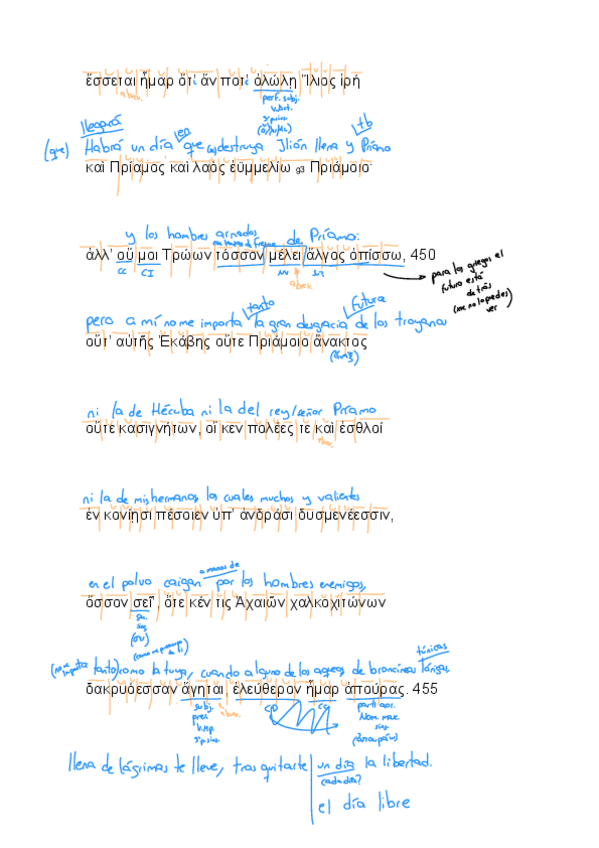 ἔσσεται ἦμαρ ὅτ' ἄν ποτ' ὀλώλῃ Ἴλιος ἱρὴ
abrev.
perf. subj.
llegará
(que) Habrá un día que destruya Ilión llena y Príamo
en
tb
καὶ Πρίαμος καὶ λαὸς ἐϋμμελίω g3 Πριάμοιο·
y los hombres armados de Príamo:
ἀλλ' οὔ μοι Τρώων τόσσον μέλει ἄλγος ὀπίσσω, 450
CC CI
abrev.
para los griegos el
futuro está
detrás
(me no lo puedes)
ver
tanto
futura
pero a mí no me importa la gran desgracia de los troyanos
οὔτ' αὐτῆς Ἑκάβης οὔτε Πριάμοιο ἄνακτος
(ἄναξ)
ni la de Hécuba ni la del rey/señor Príamo
οὔτε κασιγνήτων, οἵ κεν πολέες τε καὶ ἐσθλοὶ
abrev.
ni la de mis hermanos los cuales muchos y valientes
ἐν κονίῃσι πέσοιεν ὑπ' ἀνδράσι δυσμενέεσσιν,
a manos de
en el polvo caigan por los hombres enemigos,
ὅσσον σεῦ, ὅτε κέν τις Ἀχαιῶν χαλκοχιτώνων
(σύ)
túnicas
(no me importa tanto) como la tuya, cuando alguno de los aqueos de broncíneas túnicas
δακρυόεσσαν ἄγηται, ἐλεύθερον ἦμαρ ἀπούρας. 455
subj.
pres
abrev.
CD
parti. aor.
Nom. mas.
sing.
(ἀπαυράω)
llena de lágrimas te lleve, tras quitarte un día la libertad.
(cada día?)
el día libre